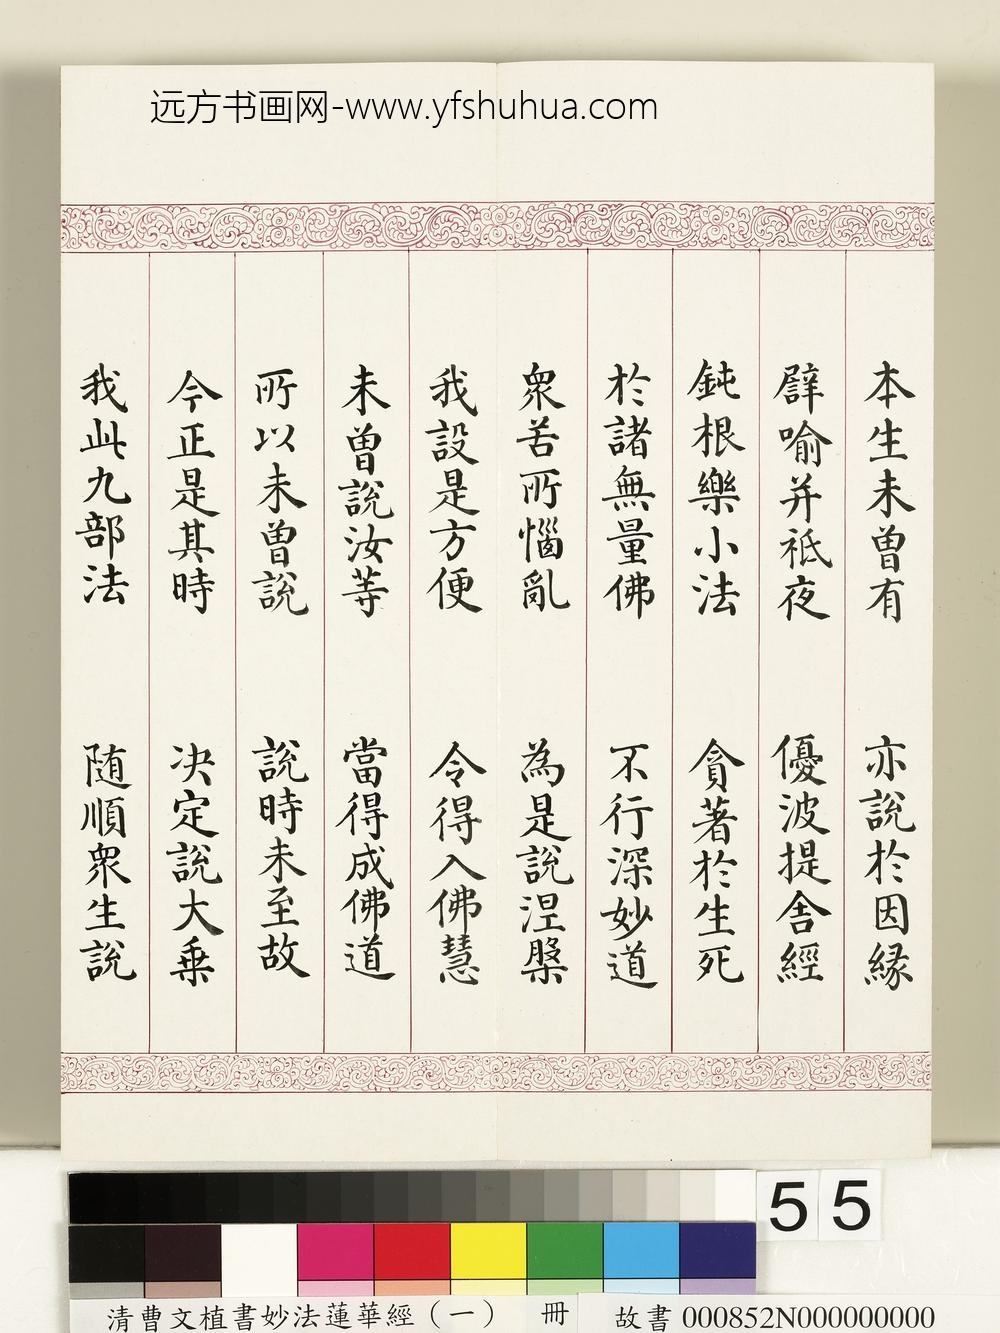 远方书画网-www.yfshuhua.com
本生未曾有 亦說於因緣
譬喻并祇夜 優波提舍經
鈍根樂小法 貪著於生死
於諸無量佛 不行深妙道
眾苦所惱亂 為是說涅槃
我設是方便 令得入佛慧
未曾說汝等 當得成佛道
所以未曾說 說時未至故
今正是其時 决定說大乘
我此九部法 随順眾生說
55
清曹文植書妙法蓮華經（一） 冊 故書 000852N000000000